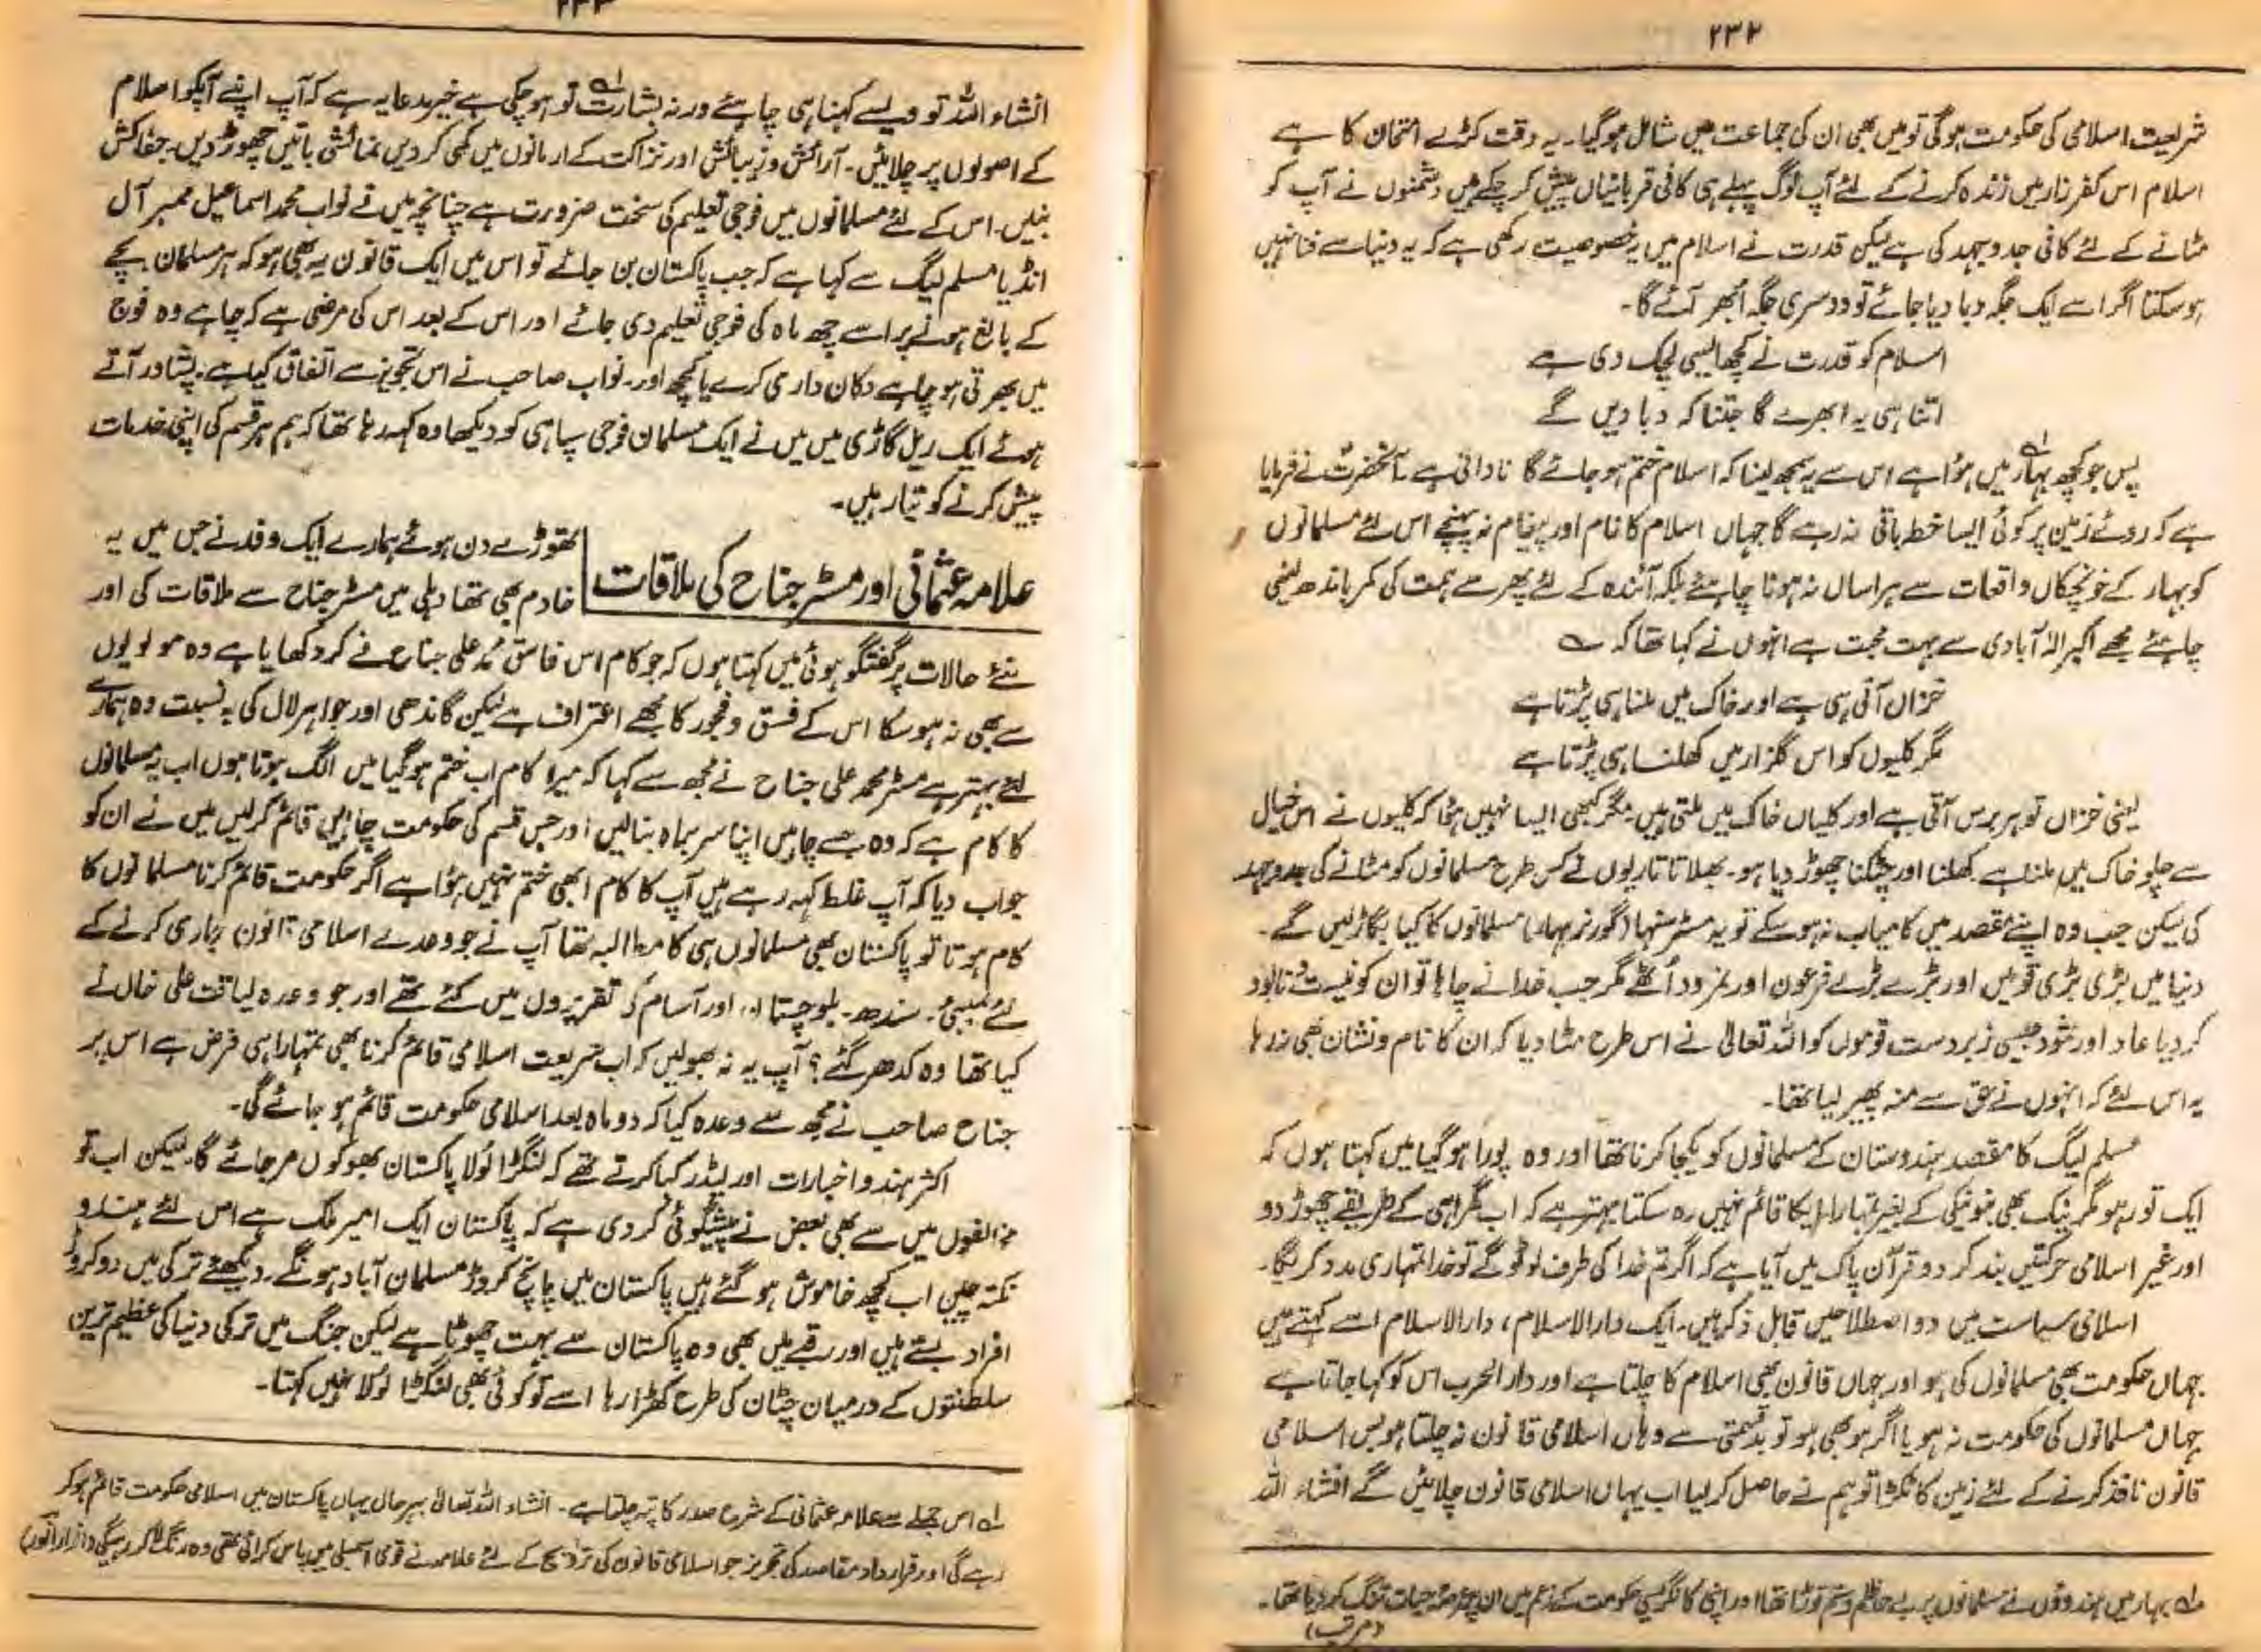 ۲۳۲
شریعت اسلامی کی حکومت ہوگی تو میں بھی ان کی جماعت میں شامل ہوگیا۔ یہ وقت کڑے امتحان کا ہے
اسلام اس کفر زار میں زندہ کرنے کے لئے آپ لوگ پہلے ہی کافی قربانیاں پیش کر چکے ہیں دشمنوں نے آپ کو
مٹانے کے لئے کافی جدوجہد کی ہے لیکن قدرت نے اسلام میں یہ خصوصیت رکھی ہے کہ یہ دنیا سے فنا نہیں
ہو سکتا اگر اسے ایک جگہ دبا دیا جائے تو دوسری جگہ اُبھر آئے گا۔
اسلام کو قدرت نے کچھ ایسی لچک دی ہے
اتنا ہی یہ ابھرے گا جتنا کہ دبا دیں گے
پس جو کچھ بہار میں ہوا ہے اس سے یہ سمجھ لینا کہ اسلام ختم ہو جائے گا نادانی ہے۔ آنحضرتؐ نے فرمایا
ہے کہ روئے زمین پر کوئی ایسا خط باقی نہ رہے گا جہاں اسلام کا نام اور پیغام نہ پہنچے اس لئے مسلمانوں
کو بہار کے خونچکاں واقعات سے ہراساں نہ ہونا چاہئے بلکہ آئندہ کے لئے پھر سے ہمت کی کمر باندھ لینی
چاہئے مجھے اکبر الٰہ آبادی سے بہت محبت ہے انہوں نے کہا تھا کہ ؎
خزاں آتی ہی ہے اور خاک میں ملنا ہی پڑتا ہے
مگر کلیوں کو اس گلزار میں کھلنا ہی پڑتا ہے
یعنی خزاں تو ہر برس آتی ہے اور کلیاں خاک میں ملتی ہیں۔ مگر کبھی ایسا نہیں ہوا کہ کلیوں نے اس خیال
سے چلو خاک میں ملنا ہے کھلنا اور چٹکنا چھوڑ دیا ہو۔ بھلا تاتاریوں نے کس طرح مسلمانوں کو مٹانے کی جدوجہد
کی لیکن جب وہ اپنے مقصد میں کامیاب نہ ہو سکے تو یہ مسٹر سنہا (گورنر بہار) مسلمانوں کا کیا بگاڑ لیں گے۔
دنیا میں بڑی بڑی قومیں اور بڑے بڑے فرعون اور نمرود اُٹھے مگر جب خدا نے چاہا تو ان کو نیست و نابود
کر دیا عاد اور ثمود جیسی زبردست قوموں کو اللہ تعالٰی نے اس طرح مٹا دیا کہ ان کا نام و نشان بھی نہ رہا
یہ اس لئے کہ انہوں نے حق سے منہ پھیر لیا تھا۔
مسلم لیگ کا مقصد ہندوستان کے مسلمانوں کو یکجا کرنا تھا اور وہ پورا ہو گیا میں کہتا ہوں کہ
ایک تو رہو مگر نیک بھی بنو نیکی کے بغیر تمہارا ایکا قائم نہیں رہ سکتا بہتر ہے کہ اب گمراہی کے طریقے چھوڑ دو
اور غیر اسلامی حرکتیں بند کر دو قرآن پاک میں آیا ہے کہ اگر تم خدا کی طرف لوٹو گے تو خدا تمہاری مدد کریگا۔
اسلامی سیاست میں دو اصطلاحیں قابل ذکر ہیں۔ ایک دارالاسلام، دارالاسلام اسے کہتے ہیں
جہاں حکومت بھی مسلمانوں کی ہو اور جہاں قانون بھی اسلام کا چلتا ہے اور دارالحرب اس کو کہا جاتا ہے
جہاں مسلمانوں کی حکومت نہ ہو یا اگر ہو بھی ہو تو بدقسمتی سے وہاں اسلامی قانون نہ چلتا ہو بس اسلامی
قانون نافذ کرنے کے لئے زمین کا ٹکڑا تو ہم نے حاصل کر لیا اب یہاں اسلامی قانون چلائیں گے انشاء اللہ
لہ بہار میں ہندوؤں نے مسلمانوں پر بے جا ظلم و ستم توڑا تھا اور اپنی کانگریسی حکومت کے زعم میں ان پر عرصۂ حیات تنگ کر دیا تھا۔
(مرتب)
۲۳۳
انشاء اللہ تو ویسے کہنا ہی چاہئے ورنہ بشارت تو ہو چکی ہے خیر مدعا یہ ہے کہ آپ اپنے آپکو اسلام
کے اصولوں پر چلائیں۔ آرائش و زیبائش اور نزاکت کے ارمانوں میں کمی کر دیں نمائشی باتیں چھوڑ دیں۔ جفاکش
بنیں۔ اس کے لئے مسلمانوں میں فوجی تعلیم کی سخت ضرورت ہے چنانچہ میں نے نواب محمد اسماعیل ممبر آل
انڈیا مسلم لیگ سے کہا ہے کہ جب پاکستان بن جائے تو اس میں ایک قانون یہ بھی ہو کہ ہر مسلمان بچے
کے بالغ ہونے پر اسے چھ ماہ کی فوجی تعلیم دی جائے اور اس کے بعد اس کی مرضی ہے کہ چاہے وہ فوج
میں بھرتی ہو چاہے دکان داری کرے یا کچھ اور۔ نواب صاحب نے اس تجویز سے اتفاق کیا ہے۔ پشاور آتے
ہوئے ایک ریل گاڑی میں میں نے ایک مسلمان فوجی سپاہی کو دیکھا وہ کہہ رہا تھا کہ ہم ہر قسم کی اپنی خدمات
پیش کرنے کو تیار ہیں۔
علامہ عثمانی اور مسٹر جناح کی ملاقات
تھوڑے دن ہوئے ہمارے ایک وفد نے جس میں یہ
خادم بھی تھا دہلی میں مسٹر جناح سے ملاقات کی اور
نئے حالات پر گفتگو ہوئی میں کہتا ہوں کہ جو کام اس فاسق محمد علی جناح نے کر دکھایا ہے وہ مولویوں
سے بھی نہ ہو سکا اس کے فسق و فجور کا مجھے اعتراف ہے لیکن گاندھی اور جواہر لال کی بہ نسبت وہ ہمارے
لئے بہتر ہے مسٹر محمد علی جناح نے مجھ سے کہا کہ میرا کام اب ختم ہو گیا میں الگ ہوتا ہوں اب یہ مسلمانوں
کا کام ہے کہ وہ جسے چاہیں اپنا سربراہ بنالیں اور جس قسم کی حکومت چاہیں قائم کر لیں میں نے ان کو
جواب دیا کہ آپ غلط کہہ رہے ہیں آپ کا کام ابھی ختم نہیں ہوا ہے اگر حکومت قائم کرنا مسلمانوں کا
کام ہوتا تو پاکستان بھی مسلمانوں ہی کا مطالبہ تھا آپ نے جو وعدے اسلامی قانون جاری کرنے کے
لئے بمبئی۔ سندھ۔ بلوچستان اور آسام کی تقریروں میں کئے تھے اور جو وعدہ لیاقت علی خاں نے
کیا تھا وہ کدھر گئے؟ آپ یہ نہ بھولیں کہ اب شریعت اسلامی قائم کرنا بھی تمہارا ہی فرض ہے اس پر
جناح صاحب نے مجھ سے وعدہ کیا کہ دو ماہ بعد اسلامی حکومت قائم ہو جائے گی۔
اکثر ہندو اخبارات اور لیڈر کہا کرتے تھے کہ لنگڑا لولا پاکستان بھوکوں مر جائے گا۔ لیکن اب تو
مخالفوں میں سے بھی بعض نے پیشگوئی کر دی ہے کہ پاکستان ایک امیر ملک ہے اس لئے ہندو
نکتہ چیں اب کچھ خاموش ہو گئے ہیں پاکستان میں پانچ کروڑ مسلمان آباد ہونگے۔ دیکھئے ترکی میں دو کروڑ
افراد بستے ہیں اور رقبے میں بھی وہ پاکستان سے بہت چھوٹا ہے لیکن جنگ میں ترکی دنیا کی عظیم ترین
سلطنتوں کے درمیان چٹان کی طرح کھڑا رہا اسے تو کوئی بھی لنگڑا لولا نہیں کہتا۔
لہ اس جملے سے علامہ عثمانی کے شرح صدر کا پتہ چلتا ہے۔ انشاء اللہ تعالٰی بہرحال یہاں پاکستان میں اسلامی حکومت قائم ہوکر
رہے گی اور قرارداد مقاصد کی تجویز جو اسلامی قانون کی ترویج کے لئے علامہ نے قومی اسمبلی میں پاس کرائی تھی وہ رنگ لاکر رہیگی